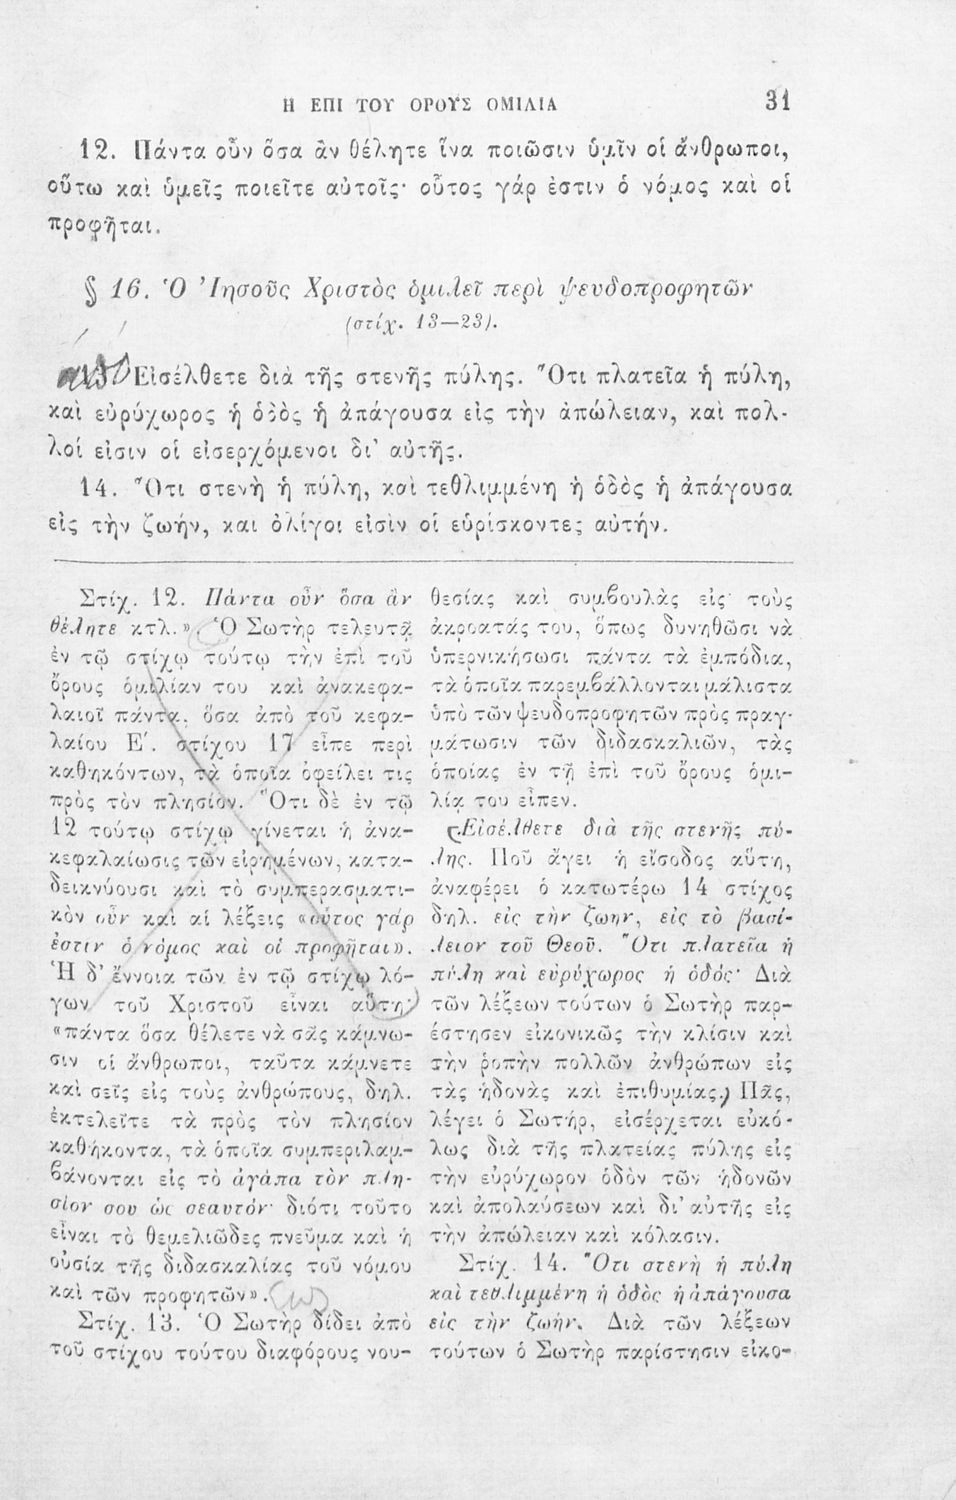 Η ΕΠΙ ΤΟΥ ΟΡΟΥΣ ΟΜΙΛΙΑ 31
12. Πάντα οὖν ὅσα ἂν θέλητε ἵνα ποιῶσιν ὑμῖν οἱ ἄνθρωποι,
οὕτω καὶ ὑμεῖς ποιεῖτε αὐτοῖς· οὗτος γάρ ἐστιν ὁ νόμος καὶ οἱ
προφῆται.
§ 16. Ὁ Ἰησοῦς Χριστὸς ὁμιλεῖ περὶ ψευδοπροφητῶν
(στίχ. 13—23).
13 Εἰσέλθετε διὰ τῆς στενῆς πύλης. Ὅτι πλατεῖα ἡ πύλη,
καὶ εὐρύχωρος ἡ ὁδὸς ἡ ἀπάγουσα εἰς τὴν ἀπώλειαν, καὶ πολ-
λοί εἰσιν οἱ εἰσερχόμενοι δι' αὐτῆς.
14. Ὅτι στενὴ ἡ πύλη, καὶ τεθλιμμένη ἡ ὁδὸς ἡ ἀπάγουσα
εἰς τὴν ζωήν, και ὀλίγοι εἰσὶν οἱ εὑρίσκοντες αὐτήν.
Στίχ. 12. Πάντα οὖν ὅσα ἂν
θέλητε κτλ.». Ὁ Σωτὴρ τελευτᾷ
ἐν τῷ στίχῳ τούτῳ τὴν ἐπὶ τοῦ
ὄρους ὁμιλίαν του καὶ ἀνακεφα-
λαιοῖ πάντα, ὅσα ἀπὸ τοῦ κεφα-
λαίου Ε΄. στίχου 17 εἶπε περὶ
καθηκόντων, τὰ ὁποῖα ὀφείλει τις
πρὸς τὸν πλησίον. Ὅτι δὲ ἐν τῷ
12 τούτῳ στίχῳ γίνεται ἡ ἀνα-
κεφαλαίωσις τῶν εἰρημένων, κατα-
δεικνύουσι καὶ τὸ συμπερασματι-
κὸν οὖν καὶ αἱ λέξεις «οὗτος γάρ
ἐστιν ὁ νόμος καὶ οἱ προφῆται».
Ἡ δ' ἔννοια τῶν ἐν τῷ στίχῳ λό-
γων τοῦ Χριστοῦ εἶναι αὕτη·
«πάντα ὅσα θέλετε νὰ σᾶς κάμνω-
σιν οἱ ἄνθρωποι, ταῦτα κάμνετε
καὶ σεῖς εἰς τοὺς ἀνθρώπους, δηλ.
ἐκτελεῖτε τὰ πρὸς τὸν πλησίον
καθήκοντα, τὰ ὁποῖα συμπεριλαμ-
βάνονται εἰς τὸ ἀγάπα τὸν πλη-
σίον σου ὡς σεαυτόν· διότι τοῦτο
εἶναι τὸ θεμελιῶδες πνεῦμα καὶ ἡ
οὐσία τῆς διδασκαλίας τοῦ νόμου
καὶ τῶν προφητῶν».
Στίχ. 13. Ὁ Σωτὴρ δίδει ἀπὸ
τοῦ στίχου τούτου διαφόρους νου-
θεσίας καὶ συμβουλὰς εἰς τοὺς
ἀκροατάς του, ὅπως δυνηθῶσι νὰ
ὑπερνικήσωσι πάντα τὰ ἐμπόδια,
τὰ ὁποῖα παρεμβάλλονται μάλιστα
ὑπὸ τῶν ψευδοπροφητῶν πρὸς πραγ-
μάτωσιν τῶν διδασκαλιῶν, τὰς
ὁποίας ἐν τῇ ἐπὶ τοῦ ὄρους ὁμι-
λίᾳ του εἶπεν.
Εἰσέλθετε διὰ τῆς στενῆς πύ-
λης. Ποῦ ἄγει ἡ εἴσοδος αὕτη,
ἀναφέρει ὁ κατωτέρω 14 στίχος
δηλ. εἰς τὴν ζωήν, εἰς τὸ βασί-
λειον τοῦ Θεοῦ. Ὅτι πλατεῖα ἡ
πύλη καὶ εὐρύχωρος ἡ ὁδός· Διὰ
τῶν λέξεων τούτων ὁ Σωτὴρ παρ-
έστησεν εἰκονικῶς τὴν κλίσιν καὶ
τὴν ῥοπὴν πολλῶν ἀνθρώπων εἰς
τὰς ἡδονὰς καὶ ἐπιθυμίας.) Πᾶς,
λέγει ὁ Σωτήρ, εἰσέρχεται εὐκό-
λως διὰ τῆς πλατείας πύλης εἰς
τὴν εὐρύχωρον ὁδὸν τῶν ἡδονῶν
καὶ ἀπολαύσεων καὶ δι' αὐτῆς εἰς
τὴν ἀπώλειαν καὶ κόλασιν.
Στίχ. 14. Ὅτι στενὴ ἡ πύλη
καὶ τεθλιμμένη ἡ ὁδὸς ἡ ἀπάγουσα
εἰς τὴν ζωήν. Διὰ τῶν λέξεων
τούτων ὁ Σωτὴρ παρίστησιν εἰκο-